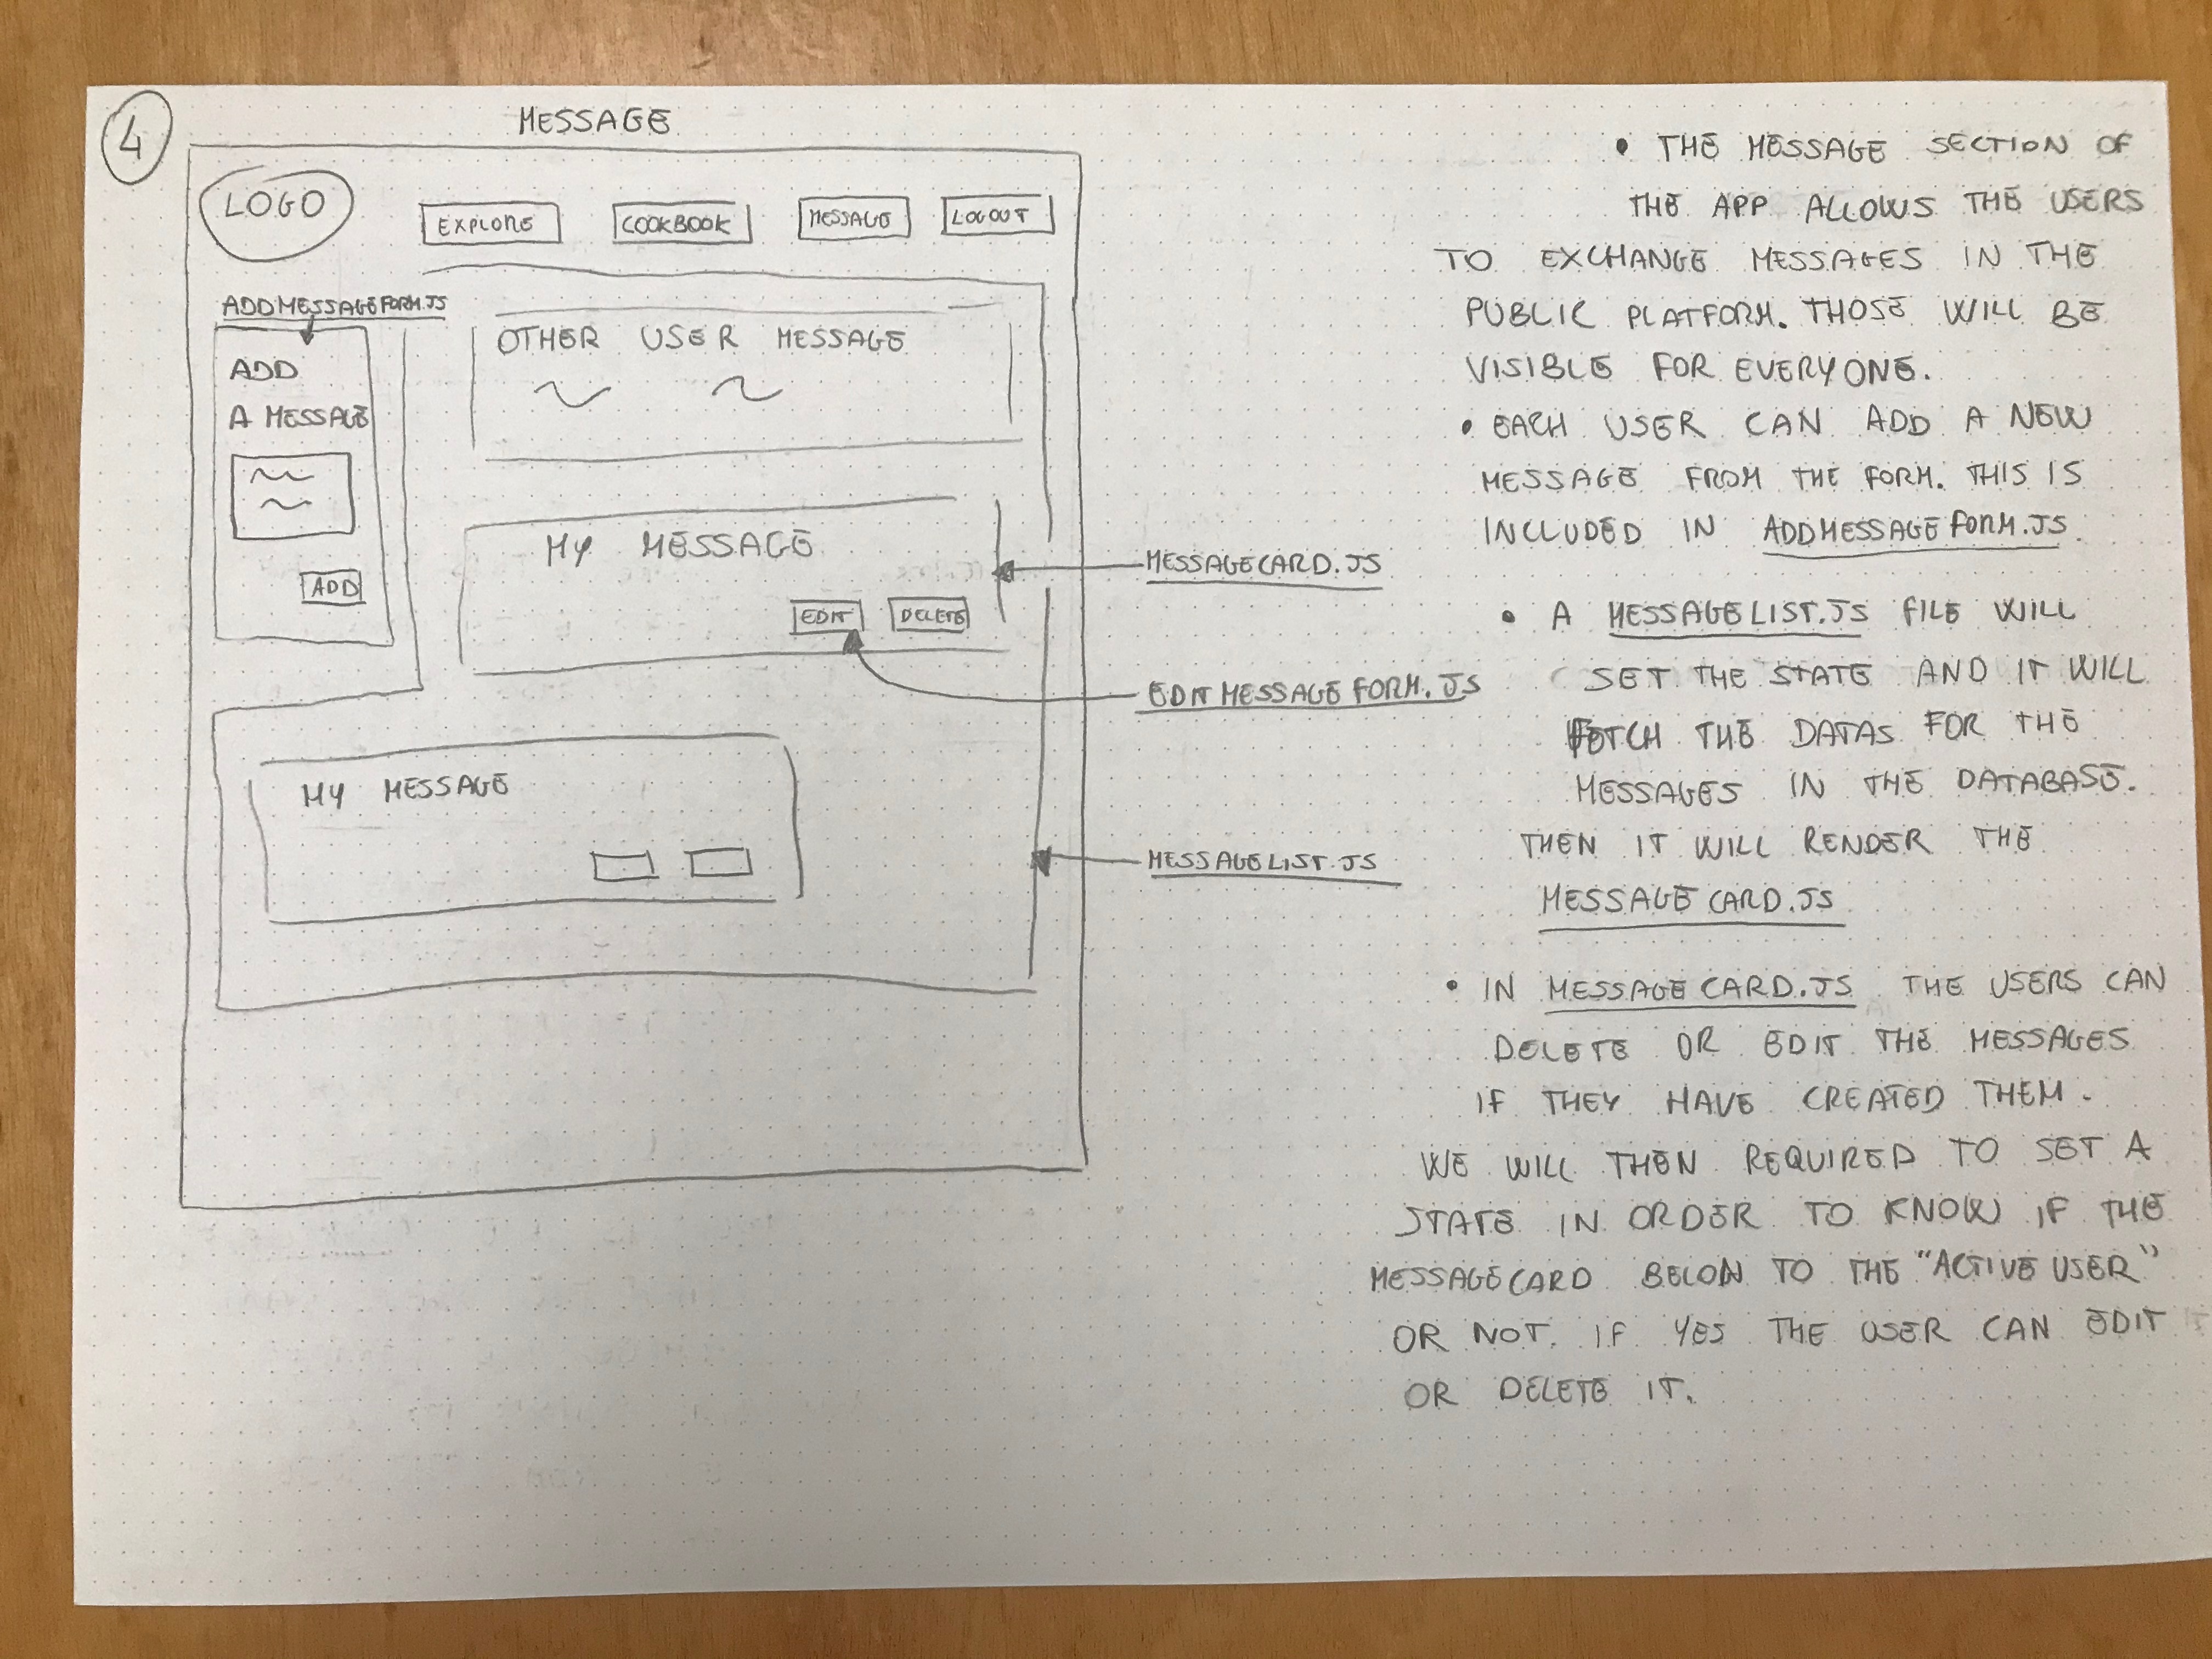 4
MESSAGE
LOGO
EXPLORE
COOKBOOK
MESSAGE
LOGOUT
ADDMESSAGEFORM.JS
ADD
A MESSAGE
ADD
OTHER USER MESSAGE
MY MESSAGE
EDIT
DELETE
MY MESSAGE
MESSAGECARD.JS
EDITMESSAGEFORM.JS
MESSAGELIST.JS
• THE MESSAGE SECTION OF
THE APP ALLOWS THE USERS
TO EXCHANGE MESSAGES IN THE
PUBLIC PLATFORM. THOSE WILL BE
VISIBLE FOR EVERYONE.
• EACH USER CAN ADD A NEW
MESSAGE FROM THE FORM. THIS IS
INCLUDED IN ADDMESSAGEFORM.JS.
• A MESSAGELIST.JS FILE WILL
SET THE STATE AND IT WILL
FETCH THE DATAS FOR THE
MESSAGES IN THE DATABASE.
THEN IT WILL RENDER THE
MESSAGECARD.JS
• IN MESSAGECARD.JS THE USERS CAN
DELETE OR EDIT THE MESSAGES
IF THEY HAVE CREATED THEM.
WE WILL THEN REQUIRED TO SET A
STATE IN ORDER TO KNOW IF THE
MESSAGECARD BELON TO THE "ACTIVE USER"
OR NOT. IF YES THE USER CAN EDIT
OR DELETE IT.